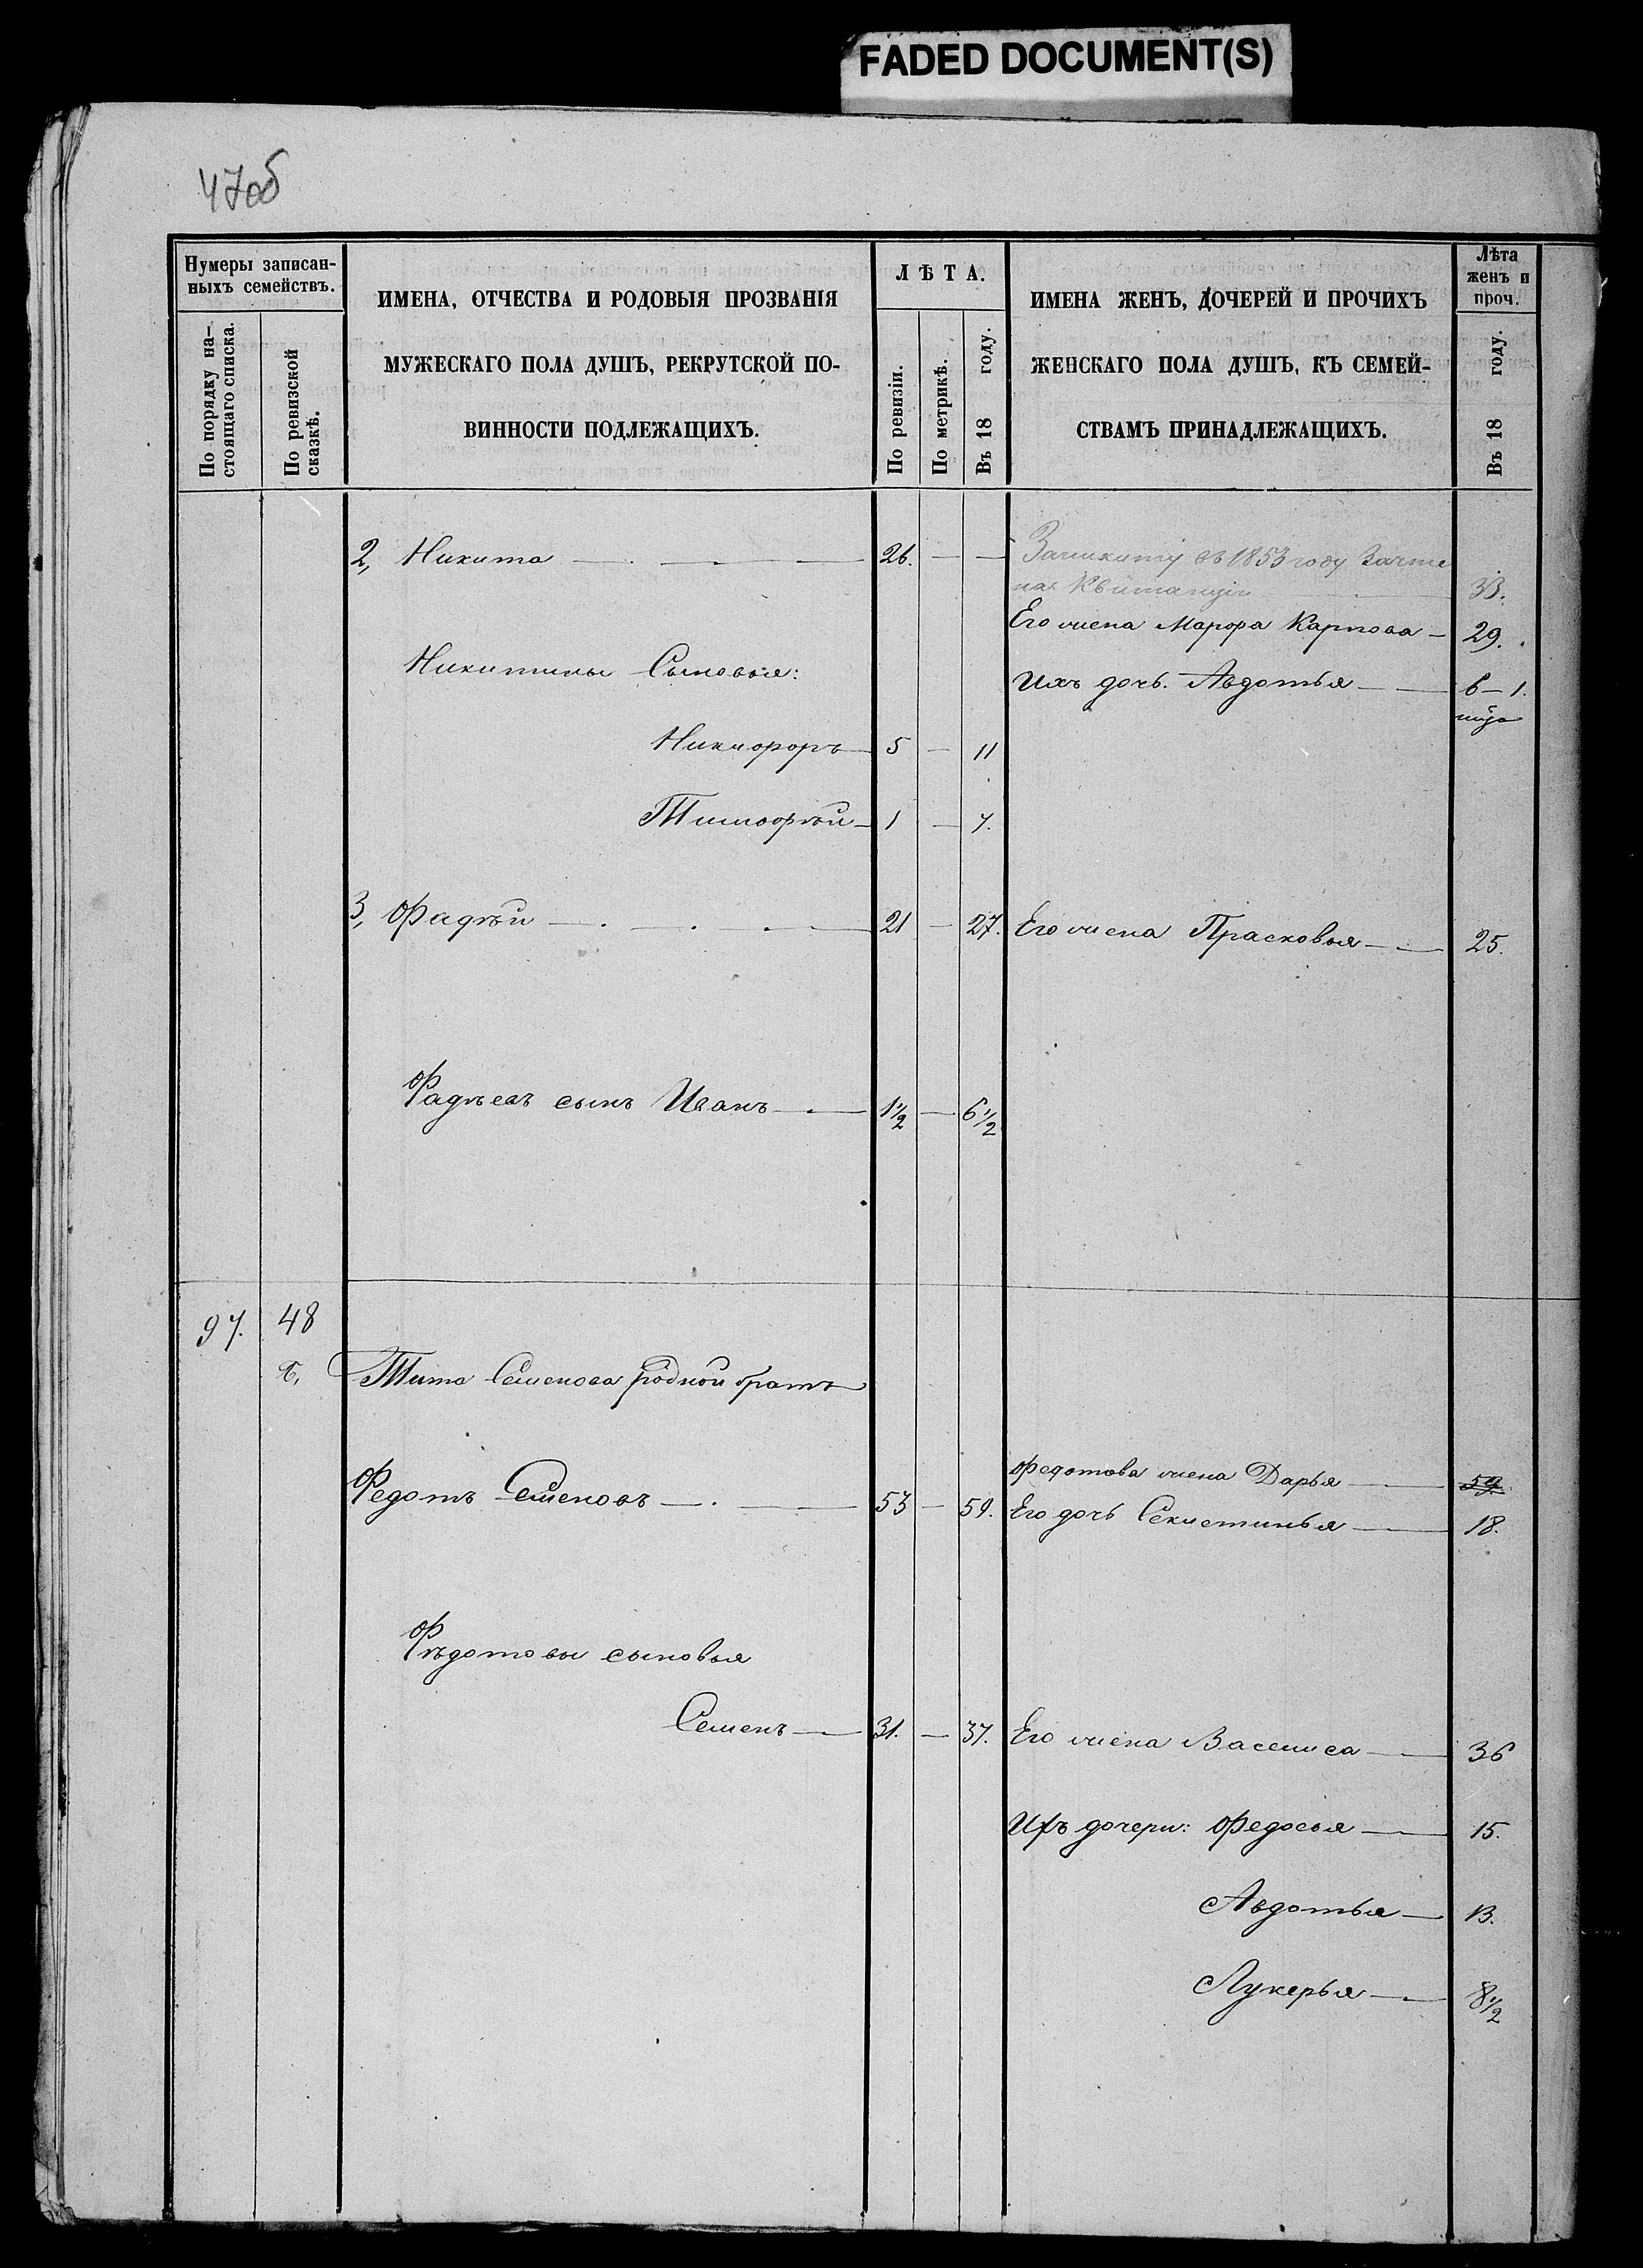 FADED DOCUMENT(S)
47об
Нумеры записан-
ныхъ семействъ.
По порядку на-
стоящаго списка.
По ревизской
сказкѣ.
ИМЕНА, ОТЧЕСТВА И РОДОВЫЯ ПРОЗВАНІЯ
МУЖЕСКАГО ПОЛА ДУШЪ, РЕКРУТСКОЙ ПО-
ВИННОСТИ ПОДЛЕЖАЩИХЪ.
ЛѢТА.
По ревизіи.
По метрикѣ.
Въ 18 году.
ИМЕНА ЖЕНЪ, ДОЧЕРЕЙ И ПРОЧИХЪ
ЖЕНСКАГО ПОЛА ДУШЪ, КЪ СЕМЕЙ-
СТВАМЪ ПРИНАДЛЕЖАЩИХЪ.
Лѣта
женъ и
проч.
Въ 18 году.
2, Никита — 26. — — въ 1853 году Зачте
на Квитанціи — 33.
Его жена Марфа Карпова — 29.
Никитины Сыновья:
Ихъ дочь. Авдотья — 6 — 1.
Никифоръ — 5 — 11
Тимофѣй — 1 — 7.
3, Фадѣй — 21 — 27. Его жена Прасковья — 25.
Фадѣевъ сынъ Иванъ — 1½ — 6½
97. 48
Тита Семенова родной братъ
Федотова жена Дарья — 59.
Федотъ Семеновъ — 53 — 59. Его дочь Секлетинья — 18.
Фѣдотовы сыновья
Семенъ — 31. — 37. Его жена Василиса — 36
Ихъ дочери: Федосья — 15.
Авдотья — 13.
Лукерья — 8½